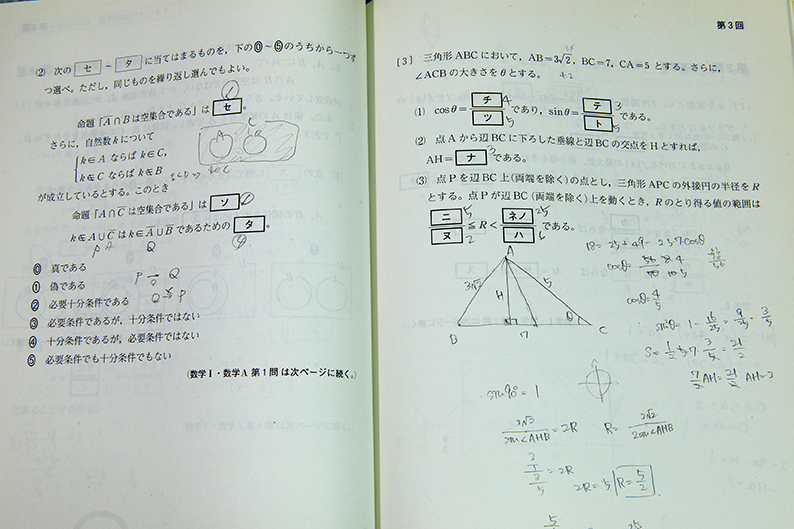 (2) 次の セ ～ タ に当てはまるものを，下の⓪～⑤のうちから一つず
つ選べ。ただし，同じものを繰り返し選んでもよい。
命題「A∩Bは空集合である」は セ 。
さらに，自然数kについて
k∈A ならば k∈C，
k∉C ならば k∉B
が成立しているとする。このとき
命題「A∩C̅ は空集合である」は ソ 。
タ 。
⓪ 真である
① 偽である
② 必要十分条件である
③ 必要条件であるが，十分条件ではない
④ 十分条件であるが，必要条件ではない
⑤ 必要条件でも十分条件でもない
(数学Ⅰ・数学A 第1問 は次ページに続く。)
P → Q
Q → P
第3回
[3] 三角形ABCにおいて，AB=3√2，BC=7，CA=5とする。さらに，
∠ACBの大きさをθとする。
(1) cosθ= チ / ツ であり，sinθ= テ / ト である。
4 5 3 5
(2) 点Aから辺BCに下ろした垂線と辺BCの交点をHとすれば，
AH= ナ である。
3
(3) 点Pを辺BC上(両端を除く)の点とし，三角形APCの外接円の半径をR
とする。点Pが辺BC(両端を除く)上を動くとき，Rのとり得る値の範囲は
ニ / ヌ ≦R< ネノ / ハ である。
5 2 25 6
18=25+49-2·5·7cosθ
cosθ=4/5
A
3√2 H 5
B 7 θ C
sinθ=1-16/25=9/25=3/5
S=1/2·5·7·3/5=21/2
7/2AH=21/2 AH=3
sin90°=1
3√2/sin∠AHB=2R R=3√2/2sin∠AHB
=2R
2R=5 R=5/2